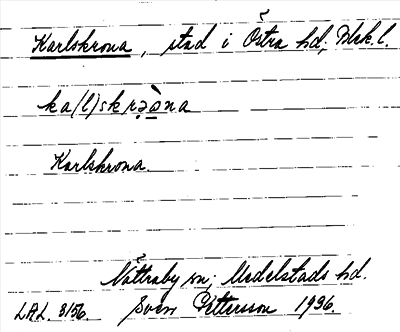 Karlskrona, stad i Östra hd; Blek.l.
ka(l)skrəòna
Karlskrona.
Nättraby sn; Medelstads hd.
LAL. 3156. Sven Pettersson 1936.